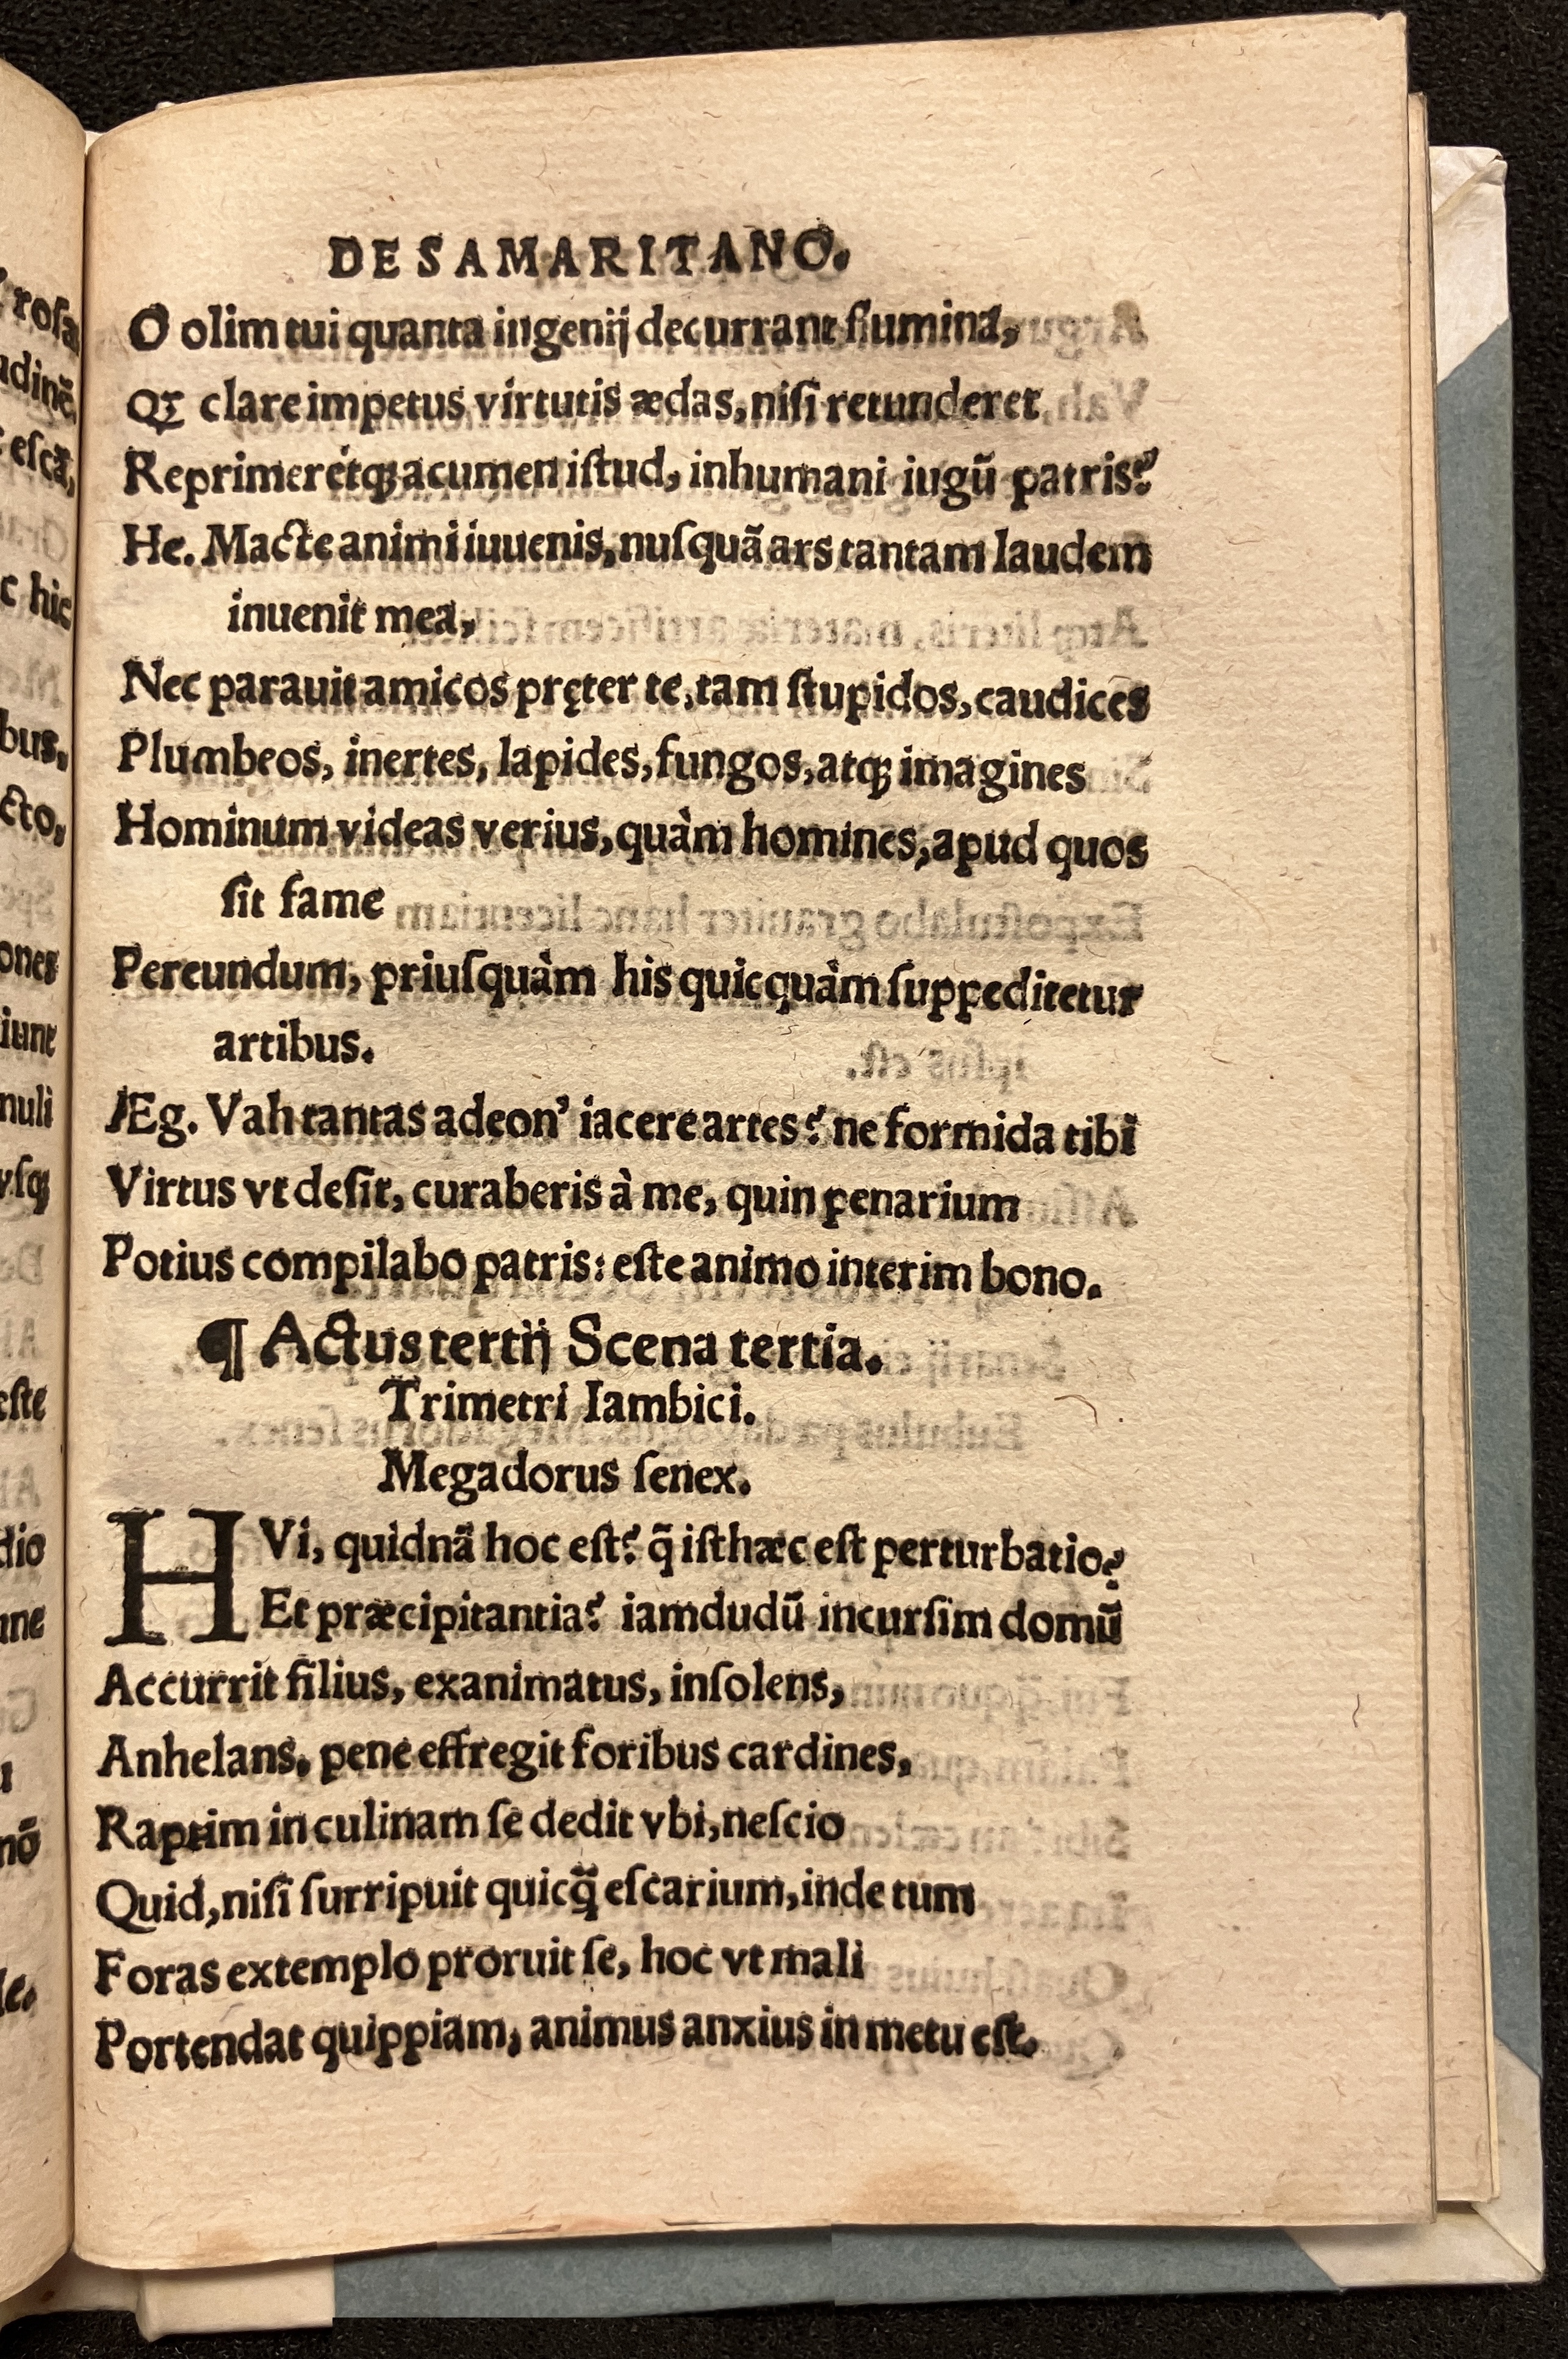 DE SAMARITANO.
O olim tui quanta ingenij decurrant flumina,
Qꝫ clare impetus virtutis ædas, nisi retunderet
Reprimerétqꝫ acumen iſtud, inhumani iugũ patris?
He. Macte animi iuuenis, nuſquã ars tantam laudem
inuenit mea,
Nec parauit amicos pręter te, tam ſtupidos, caudices
Plumbeos, inertes, lapides, fungos, atqꝫ imagines
Hominum videas verius, quàm homines, apud quos
ſit fame
Pereundum, priuſquàm his quicquàm ſuppeditetur
artibus.
Æg. Vah tantas adeon’ iacere artes? ne formida tibi
Virtus vt deſit, curaberis à me, quin penarium
Potius compilabo patris: eſte animo interim bono.
¶ Actus tertij Scena tertia.
Trimetri Iambici.
Megadorus ſenex.
HVi, quidnã hoc eſt? q̃ iſthæc eſt perturbatio?
Et præcipitantia? iamdudũ incurſim domũ
Accurrit filius, exanimatus, inſolens,
Anhelans, pene effregit foribus cardines,
Raptim in culinam ſe dedit vbi, neſcio
Quid, niſi ſurripuit quicq̃ eſcarium, inde tum
Foras extemplo proruit ſe, hoc vt mali
Portendat quippiam, animus anxius in metu eſt.